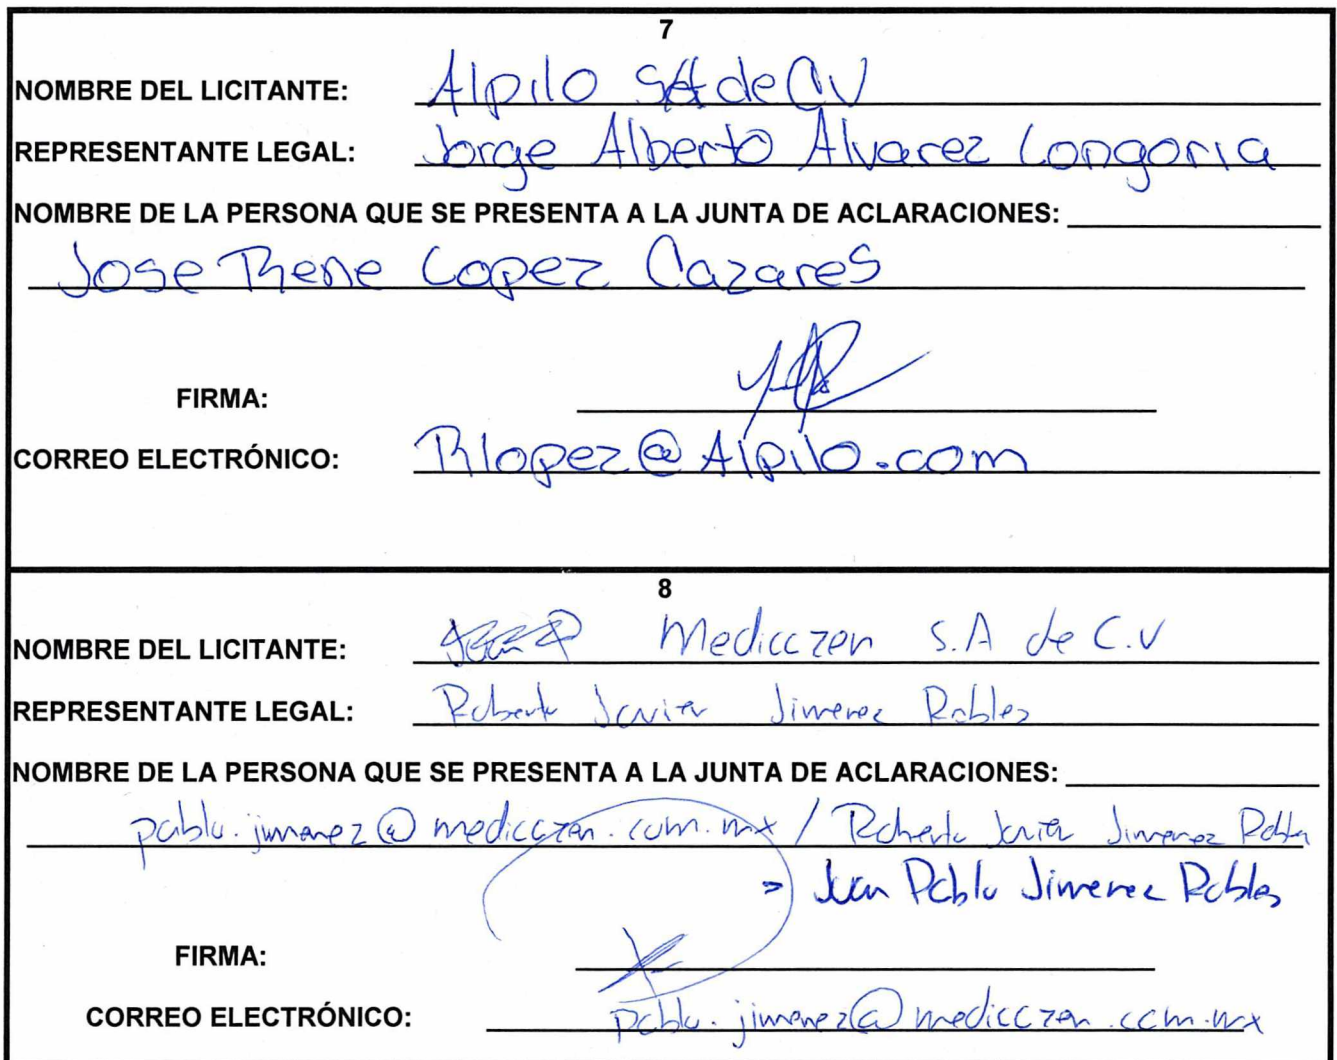 7
NOMBRE DEL LICITANTE: Alpilo SA de CV
REPRESENTANTE LEGAL: Jorge Alberto Alvarez Longoria
NOMBRE DE LA PERSONA QUE SE PRESENTA A LA JUNTA DE ACLARACIONES:
Jose Rene Lopez Cazares
FIRMA:
CORREO ELECTRÓNICO: Rlopez@Alpilo.com
8
NOMBRE DEL LICITANTE: Medicczen S.A de C.V
REPRESENTANTE LEGAL: Roberto Javier Jimenez Robles
NOMBRE DE LA PERSONA QUE SE PRESENTA A LA JUNTA DE ACLARACIONES:
pablo.jimenez@medicczen.com.mx / Roberto Javier Jimenez Robles
> Juan Pablo Jimenez Robles
FIRMA:
CORREO ELECTRÓNICO: pablo.jimenez@medicczen.com.mx